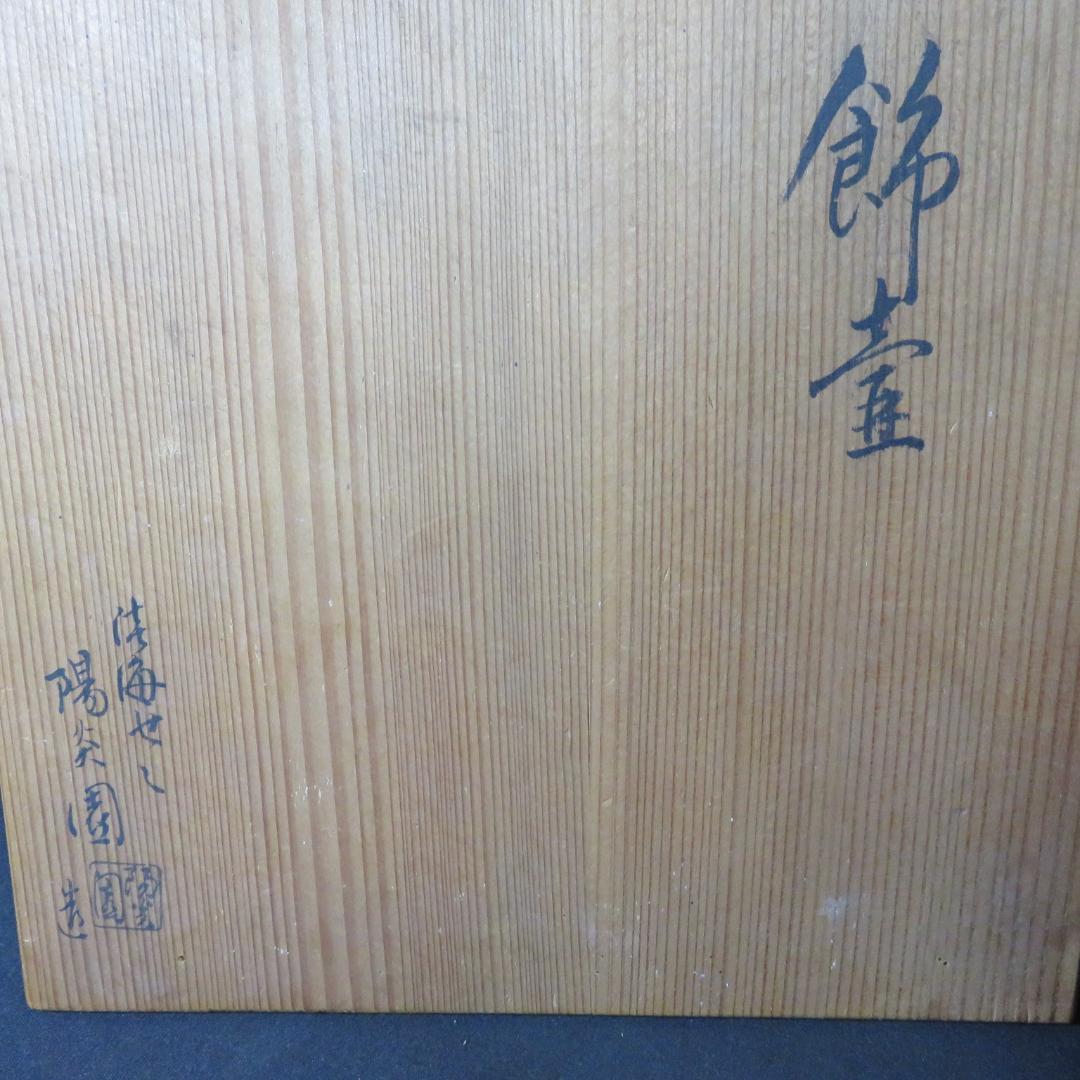 飾壷
淡海せゝ
陽炎園 造
陽炎園